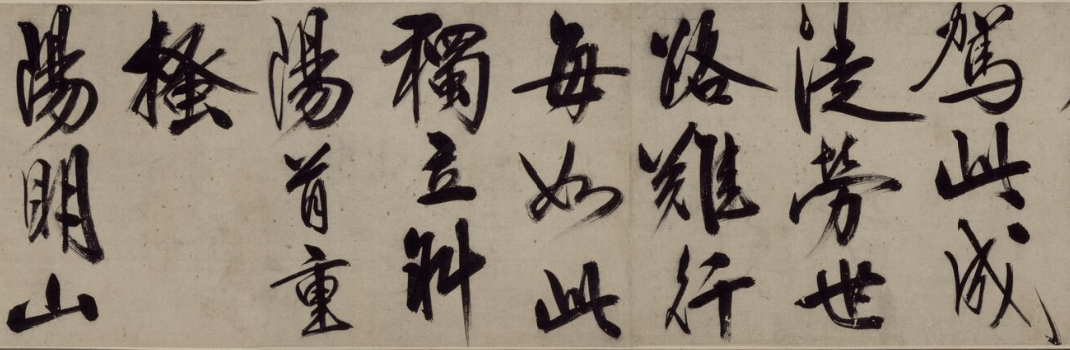 駕此成
徒勞世
路難行
每如此
獨立斜
陽首重
搔
陽明山